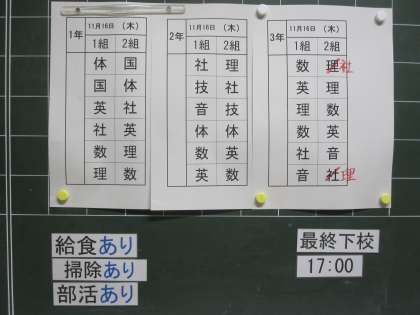 1年 11月16日 (木)
1組 2組
体 国
国 体
英 社
社 英
数 理
理 数
2年 11月16日 (木)
1組 2組
社 理
技 社
音 技
体 体
数 英
英 数
3年 11月16日 (木)
1組 2組
数 理 社
英 理
理 数
数 英
社 音
音 社 理
給食あり
掃除あり
部活あり
最終下校
17:00